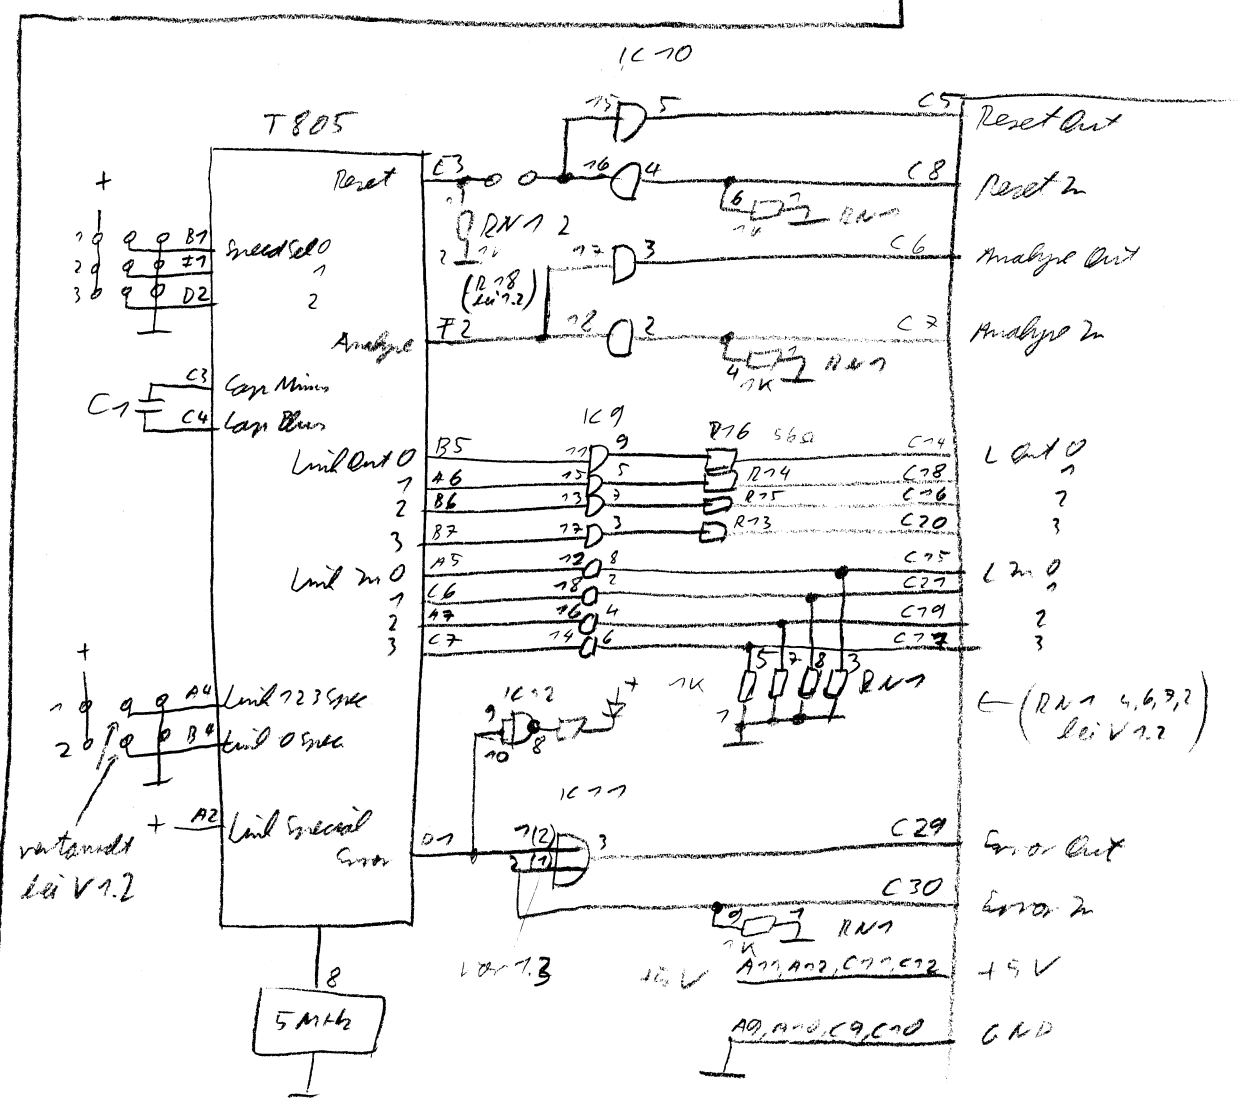 IC 10
T805
15 5 C5 Reset Out
Reset E3 16 4 C8 Reset In
+
6 1 RN1
1K
RN1 2
1K
2
(R18
bei 1.2)
17 3 C6 Analyse Out
1 B1 SpeedSel 0
2 E1 1
3 D2 2
Analyse F2 18 2 C7 Analyse In
4 1 RN1
1K
C1
C3 Cap Minus
C4 Cap Plus
IC9
R16 56Ω
Link Out 0 B5 11 9 C14 L Out 0
1 A6 15 5 R14 C18 1
2 B6 13 7 R15 C16 2
3 B7 17 3 R13 C20 3
Link In 0 A5 12 8 C15 L In 0
1 C6 18 2 C21 1
2 A7 16 4 C19 2
3 C7 14 6 C17 3
1K 5 7 8 3 RN1
1
← (RN1 4,6,9,2
bei V1.2)
+
1 A4 Link 123 Spec
2 B4 Link 0 Spec
IC12
9
10 8
+
vertauscht
bei V1.2
+ A2 Link Special
IC11
Error D1 1(2) 3 C29 Error Out
2 (1)
C30 Error In
9 1 RN1
1K
vor 1.3
+5V A11,A12,C11,C12 +5V
A9,A10,C9,C10 GND
8
5 MHz